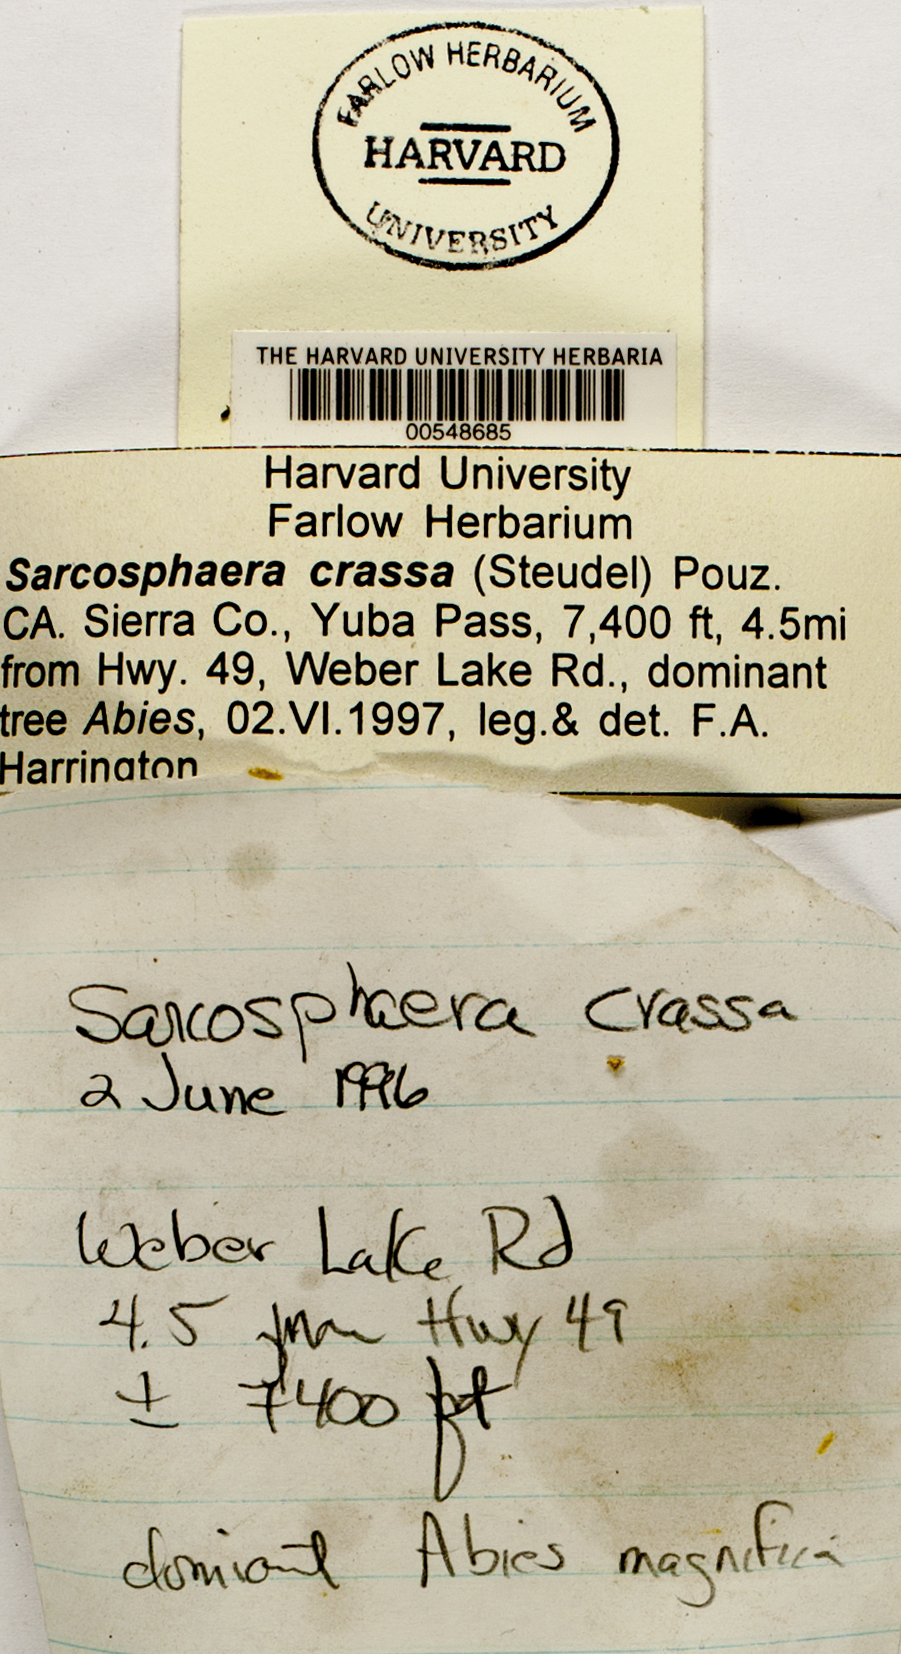 FARLOW HERBARIUM
HARVARD
UNIVERSITY
THE HARVARD UNIVERSITY HERBARIA
00548685
Harvard University
Farlow Herbarium
Sarcosphaera crassa (Steudel) Pouz.
CA. Sierra Co., Yuba Pass, 7,400 ft, 4.5mi
from Hwy. 49, Weber Lake Rd., dominant
tree Abies, 02.VI.1997, leg.& det. F.A.
Harrington
Sarcosphaera crassa
2 June 1996
Weber Lake Rd
4.5 from Hwy 49
± 7400 ft
domiant Abies magnifica